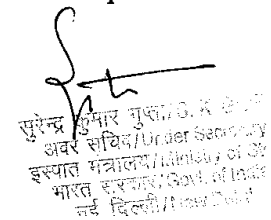 सुरेन्द्र कुमार गुप्ता/S. K.
अवर सचिव/Under Secretary
इस्पात मंत्रालय/Ministry of
भारत सरकार/Govt. of India
नई दिल्ली/New Delhi